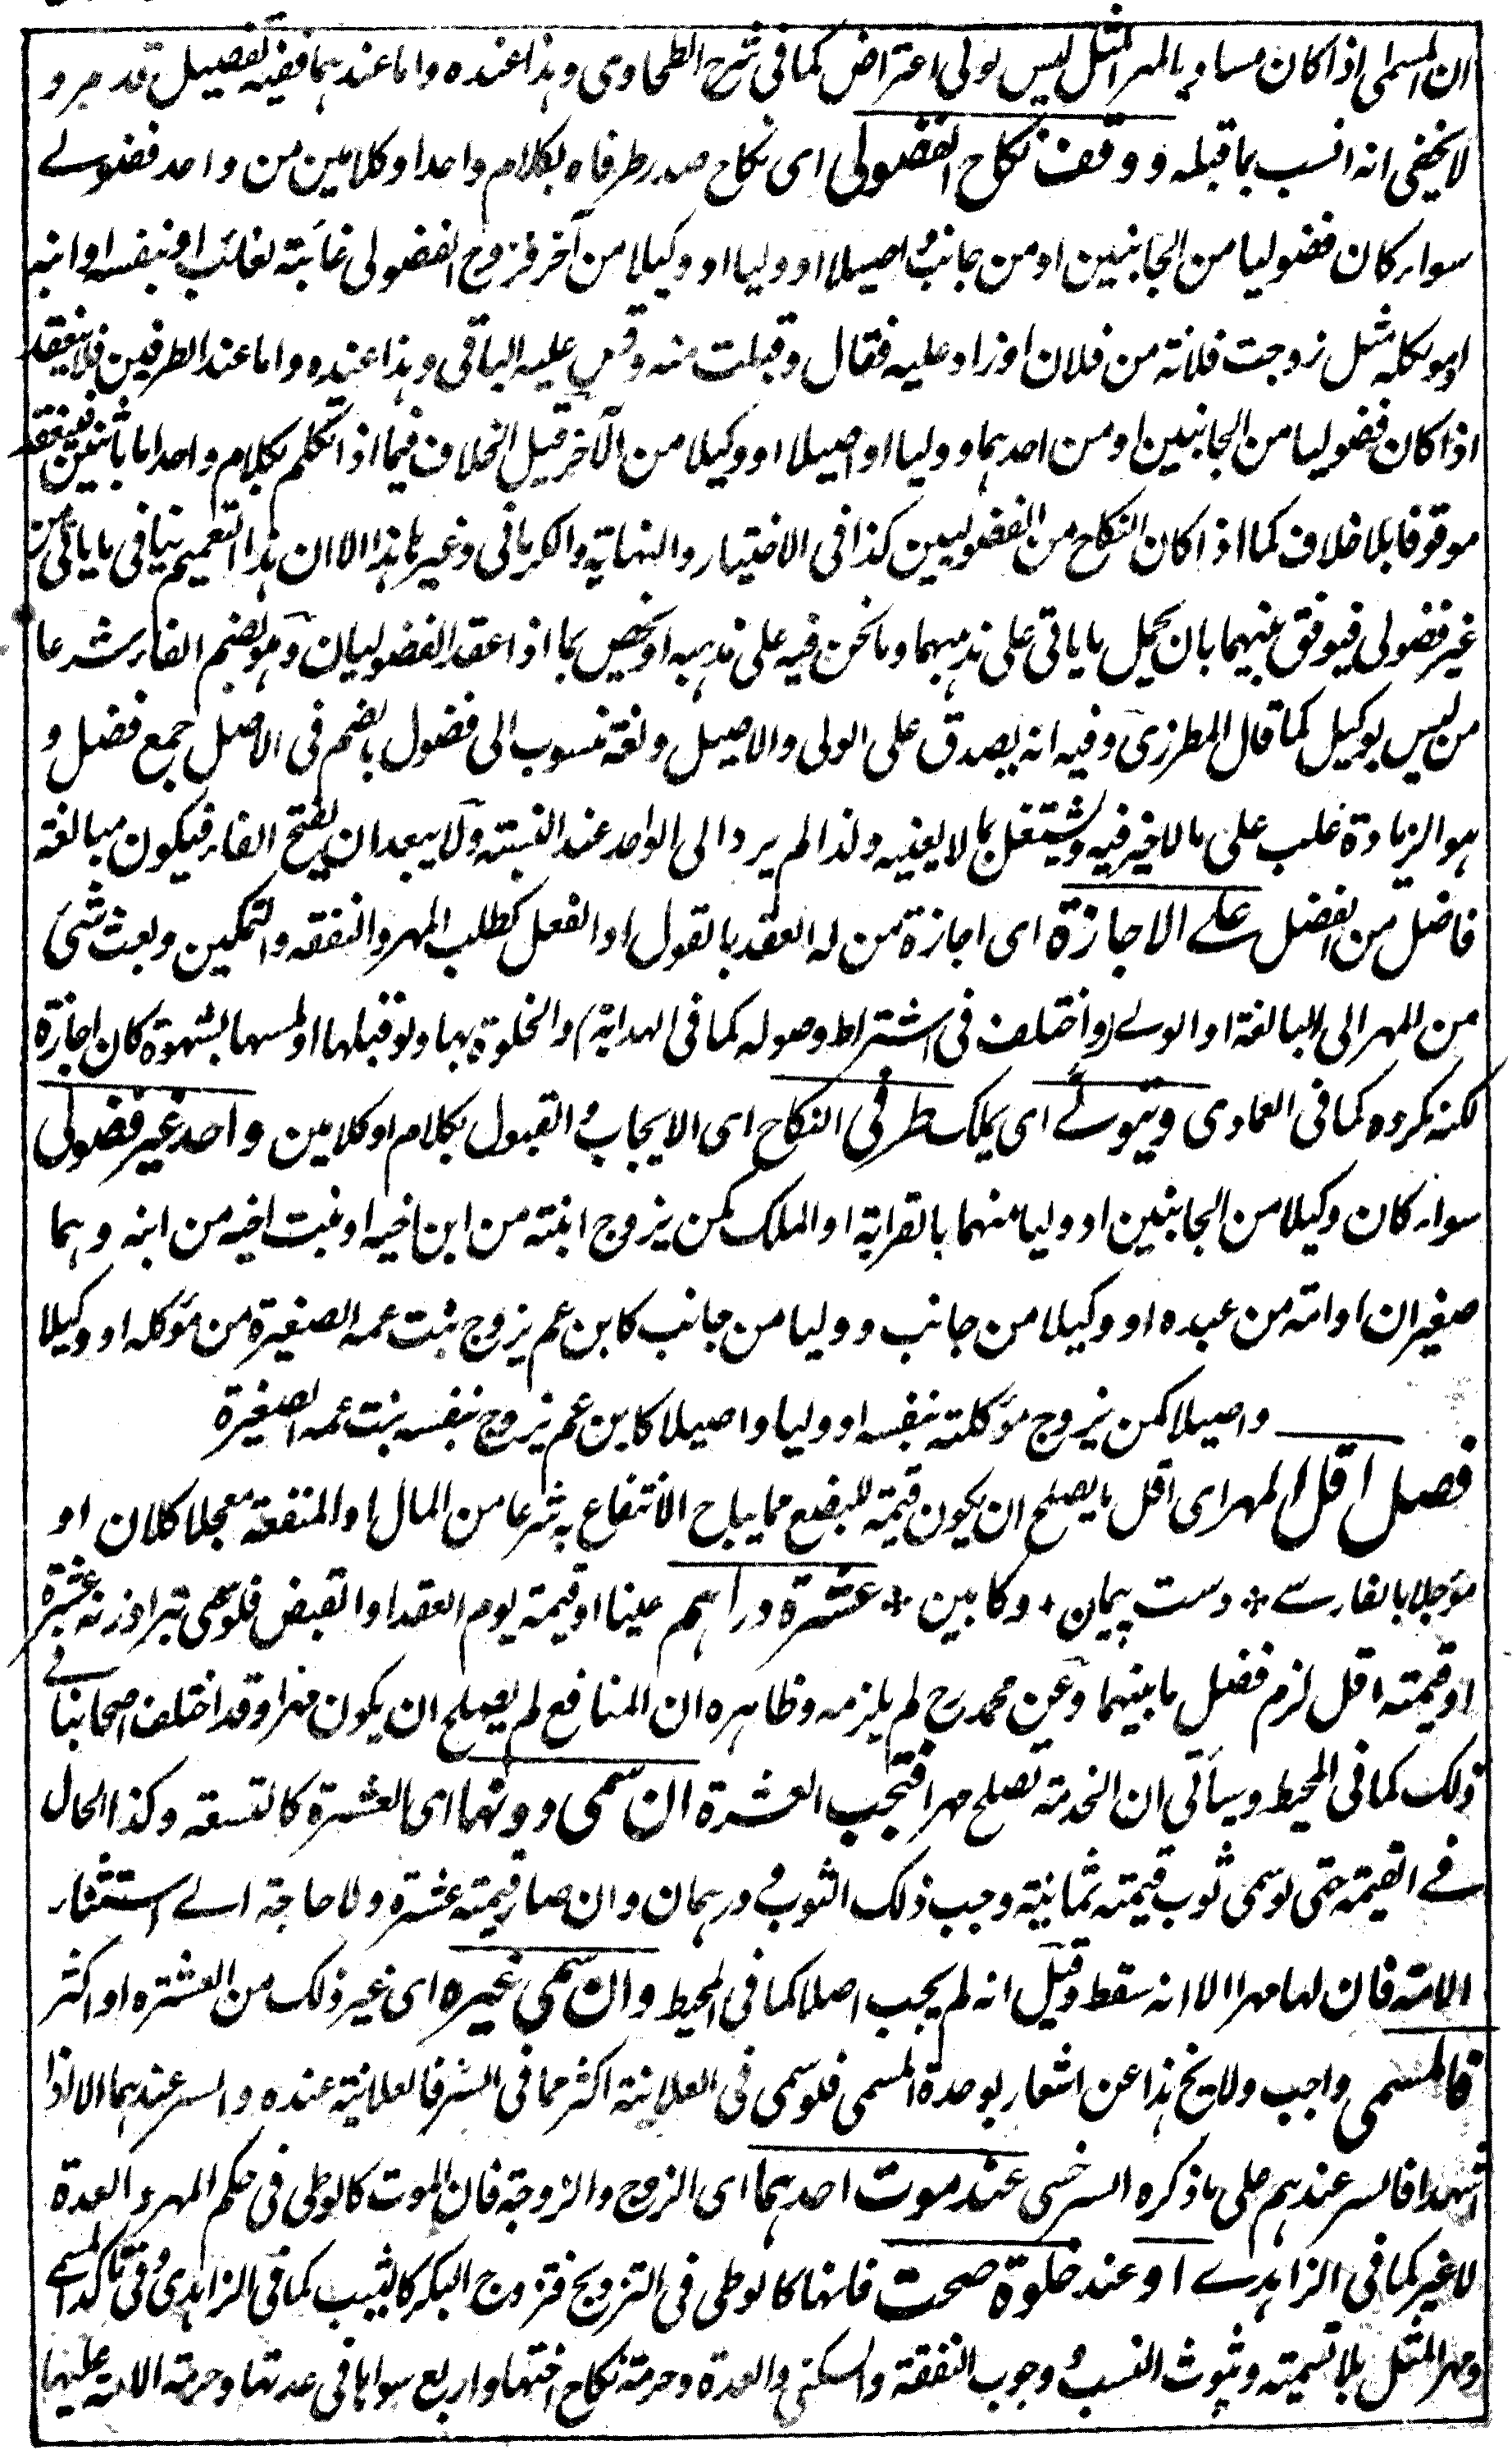 ان المسمى اذا كان مساويا لمهر المثل ليس لولى اعتراض كما فى شرح الطحاوى وهذا عنده واما عندهما ففيه تفصيل قد مر و
لا يخفى انه انسب بما قبله ووقف نكاح الفضولى اى نكاح صدر طرفاه بكلام واحد او كلامين من واحد فضولے
سواء كان فضوليا من الجانبين او من جانب اصيلا او وليا او وكيلا من آخر فزوج الفضولى غائبة لغائب او بنفسه او ابنه
او موكله مثل زوجت فلانة من فلان او زاد عليه فقال وقبلت منه وقس عليه الباقى وهذا عنده واما عند الطرفين فلا ينعقد
اذا كان فضوليا من الجانبين او من احدهما ووليا او اصيلا او وكيلا من الآخر قيل الخلاف فيما اذا تكلم بكلام واحد اما باثنين فينعقد
موقوفا بلا خلاف كما اذا كان النكاح من الفضوليين كذا فى الاختيار والنهاية والكرمانى وغيرها هذا الا ان هذا التعميم ينافى ما ياتى من
غير فضولى فيوفق بينهما بان يحمل ما ياتى على مذهبهما وما نحن فيه على مذهبه او يخص بما اذا عقد الفضوليان وهو بضم الفاء شرعا
من ليس بوكيل كما قال المطرزى وفيه انه يصدق على الولى والاصيل ولغة منسوب الى فضول بالضم فى الاصل جمع فضل و
هو الزيادة غلب على ما لا خير فيه ويشتغل بما لا يعنيه ولذا لم يرد الى الواحد عند النسبة ولا يبعد ان يفتح الفاء فيكون مبالغة
فاضل من الفضل علے الاجازة اى اجازة من له العقد بالقول او الفعل كطلب المهر والنفقه والتمكين وبعث شئ
من المهر الى البالغة او الولے (واختلف فى اشتراط وصوله كما فى الهداية) والخلوة بها ولو قبلها او لمسها بشهوة كان اجازة
لكنه مكروه كما فى العمادى ويتولے اى يملك طرفى النكاح اى الايجاب والقبول بكلام او كلامين واحد غير فضولى
سواء كان وكيلا من الجانبين او وليا منهما بالقرابة او الملك كمن يزوج ابنته من ابن اخيه او بنت اخيه من ابنه وهما
صغيران او امته من عبده او وكيلا من جانب ووليا من جانب كابن عم يزوج بنت عمه الصغيرة من موكله او وكيلا
واصيلا كمن يزوج موكلته بنفسه او وليا واصيلا كابن عم يزوج بنفسه بنت عمه الصغيرة
فصل اقل المهر اى اقل ما يصلح ان يكون قيمة للبضع مما يباح الانتفاع به شرعا من المال او المنفعة معجلا كلان او
مؤجلا بالفارسے * دست پيمان * وكابين * عشرة دراهم عينا او قيمته يوم العقد او القبض فلو سمى تبرا وزنه عشرة
او قيمته اقل لزم فضل ما بينهما وعن محمد رح لم يلزمه وظاهره ان المنافع لم يصلح ان يكون مهرا وقد اختلف اصحابنا فے
ذلك كما فى المحيط وسيأتى ان الخدمة تصلح مهرا فتجب العشرة ان سمى دونها اى العشرة كالتسعة وكذا الحال
فے القيمة حتى لو سمى ثوب قيمته ثمانية وجب ذلك الثوب و درهمان وان صار قيمته عشرة ولا حاجة الے استثناء
الامة فان لها مهرا الا انه سقط وقيل انه لم يجب اصلا كما فى المحيط وان سمى غيره اى غير ذلك من العشرة او اكثر
فالمسمى واجب ولا يخ هذا عن اشعار بوحدة المسمى فلو سمى فى العلانية اكثر مما فى السر فالعلانية عنده والسر عندهما الا اذا
اشهدا فالسر عندهم على ما ذكره السرخسى عند موت احدهما اى الزوج والزوجة فان الموت كالوطى فى حكم المهر والعدة
لا غير كما فى الزاهدے او عند خلوة صحت فانها كالوطى فى التزويج فتزوج البكر كالثيب كما فى الزاهدى وفى تاكد المسمى
ومهر المثل بلا تسمية وثبوت النسب ووجوب النفقة والسكنى والعدة وحرمة نكاح اختها واربع سواها فى عدتها وحرمة الامة عليها